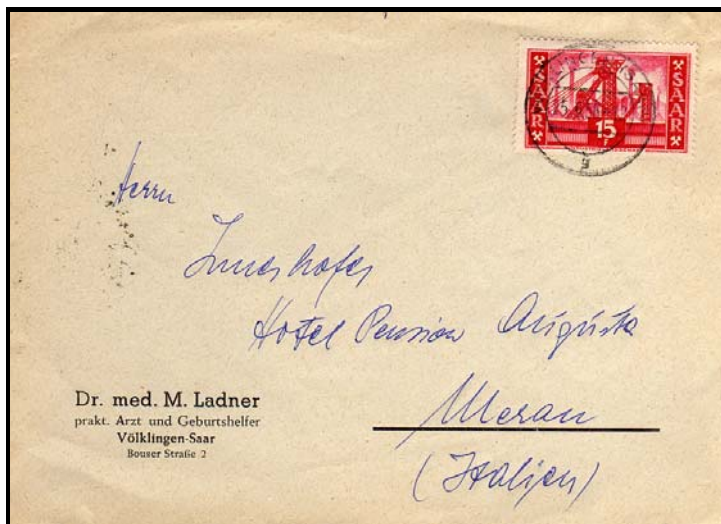 SAAR
SAAR
15
F
g
Herrn
Innerhofer
Hotel Pension Augusta
Meran
(Italien)
Dr. med. M. Ladner
prakt. Arzt und Geburtshelfer
Völklingen-Saar
Bouser Straße 2